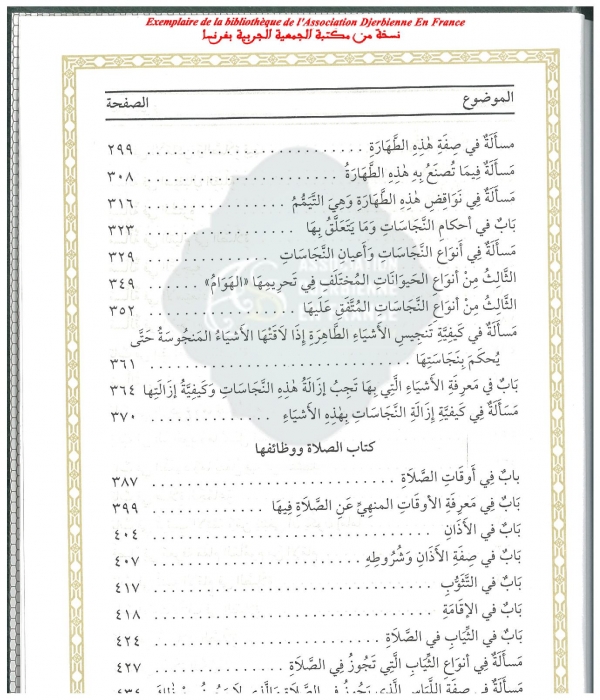 Exemplaire de la bibliothèque de l'Association Djerbienne En France
نسخة من مكتبة الجمعية الجربية بفرنسا
الموضوع الصفحة
مسأَلَةٌ في صِفَةِ هٰذِهِ الطَّهَارَةِ ٢٩٩
مَسأَلَةٌ فِيمَا تُصنَعُ بِهِ هٰذِهِ الطَّهَارَةُ ٣٠٨
مَسأَلَةٌ فِي نَوَاقِضِ هٰذِهِ الطَّهَارَةِ وَهِيَ التَّيَمُّمُ ٣١٦
بَابٌ في أحكامِ النَّجَاسَاتِ وَمَا يَتَعَلَّقُ بِهَا ٣٢٣
مَسأَلَةٌ في أَنوَاعِ النَّجَاسَاتِ وَأَعيانِ النَّجَاسَاتِ ٣٢٩
الثَّالِثُ مِنْ أنوَاعِ الحَيوَانَاتِ المُختَلَفِ فِي تَحرِيمِهَا «الهَوَامُ» ٣٤٩
الثَّالِثُ مِن أَنوَاعِ النَّجَاسَاتِ المُتَّفَقِ عَلَيهَا ٣٥٢
مَسأَلَةٌ في كَيفِيَّةِ تَنجِيسِ الأَشيَاءِ الطَّاهِرَةِ إِذَا لَاقَتْهَا الأَشيَاءُ المَنجُوسَةُ حَتَّى
يُحكَمَ بِنَجَاسَتِهَا ٣٦١
بَابٌ في مَعرِفَةِ الأَشيَاءِ الَّتِي بِهَا تَجِبُ إِزَالَةُ هٰذِهِ النَّجَاسَاتِ وَكَيفِيَّةُ إِزَالَتِها ٣٦٤
مَسَأَلَةٌ فِي كَيفِيَّةِ إِزَالَةِ النَّجَاسَاتِ بِهٰذِهِ الأَشيَاءِ ٣٧٠
كتاب الصلاة ووظائفها
بابٌ في أَوقَاتِ الصَّلَاةِ ٣٨٧
بَابٌ فِي مَعرِفَةِ الأوقَاتِ المنهِيِّ عَنِ الصَّلَاةِ فِيهَا ٣٩٩
بَابٌ في الأَذَانِ ٤٠٤
بَابٌ في صِفَةِ الأَذَانِ وَشُرُوطِهِ ٤٠٧
بَابٌ في التَّثَوُّبِ ٤١٧
بَابٌ في الإِقَامَةِ ٤١٨
بَابٌ في الثِّيَابِ في الصَّلَاةِ ٤٢٤
مَسأَلَةٌ في أنوَاعِ الثِّيَابِ الَّتِي تَجُوزُ فِي الصَّلَاةِ ٤٢٧
مَسأَلَةٌ في صِفَةِ اللِّبَاسِ الَّذِي يَجُوزُ في الصَّلَاةِ